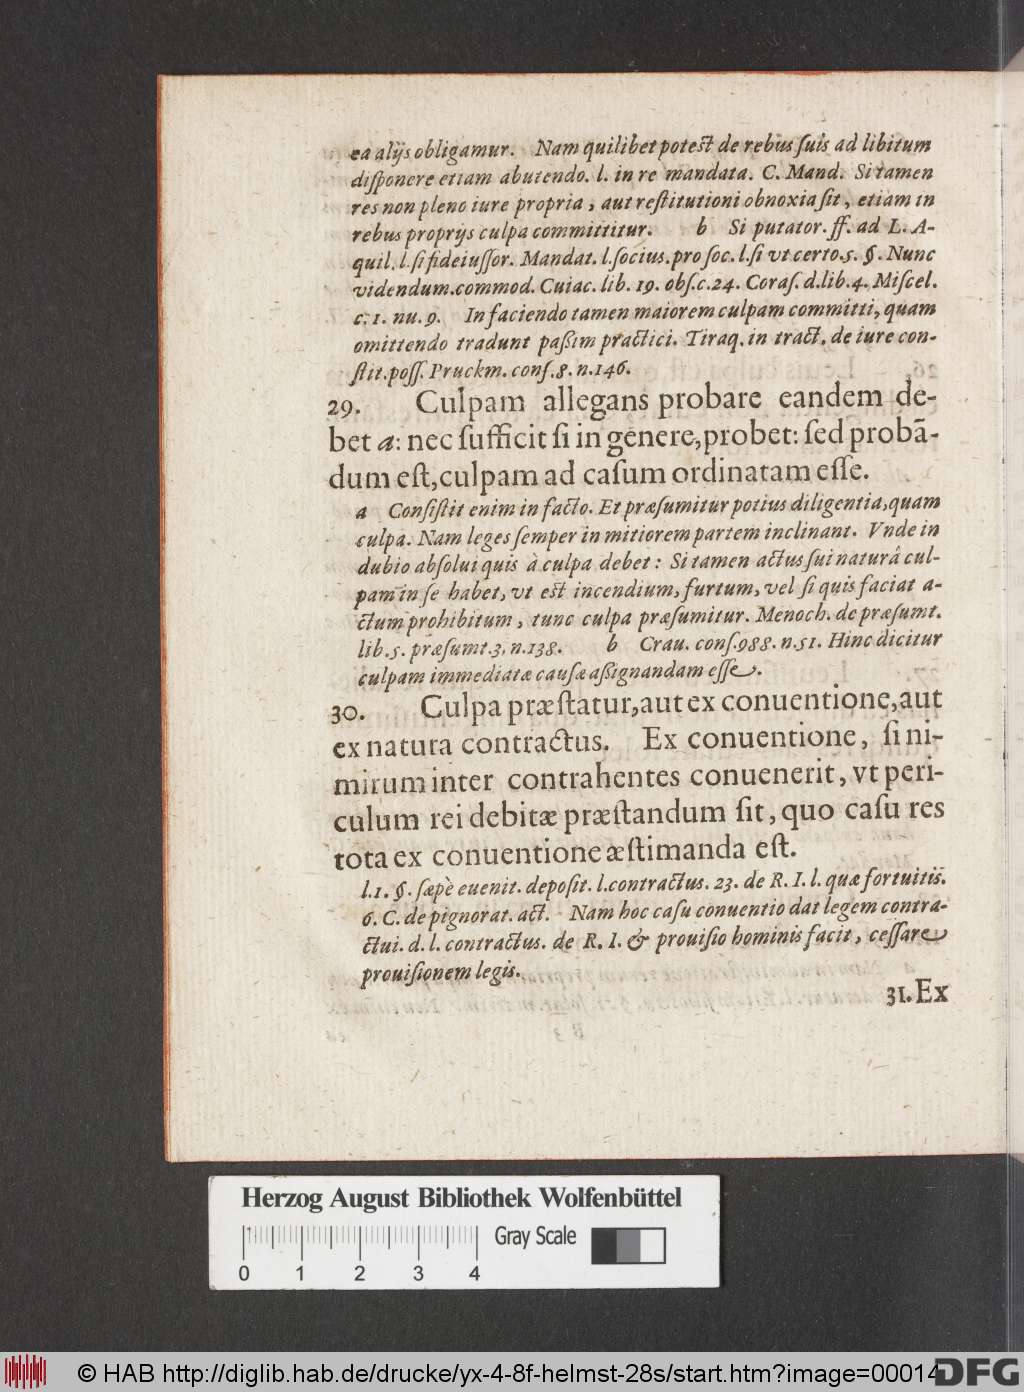 ea alijs obligamur. Nam quilibet potest de rebus ſuis ad libitum
diſponere etiam abutendo. l. in re mandata. C. Mand. Si tamen
res non pleno iure propria, aut reſtitutioni obnoxia ſit, etiam in
rebus proprijs culpa committitur. b Si putator. ff. ad L. A-
quil. l. ſi fideiuſſor. Mandat. l. ſocius. pro ſoc. l. ſi vt certo. 5. §. Nunc
videndum. commod. Cuiac. lib. 19. obſ. c. 24. Coraſ. d. lib. 4. Miſcel.
c. 1. nu. 9. In faciendo tamen maiorem culpam committi, quam
omittendo tradunt paßim practici. Tiraq. in tract. de iure con-
ſtit. poſſ. Pruckm. conſ. 8. n. 146.
29. Culpam allegans probare eandem de-
bet a: nec ſufficit ſi in genere, probet: ſed probā-
dum eſt, culpam ad caſum ordinatam eſſe.
a Conſiſtit enim in facto. Et præſumitur potius diligentia, quam
culpa. Nam leges ſemper in mitiorem partem inclinant. Vnde in
dubio abſolui quis à culpa debet: Si tamen actus ſui naturâ cul-
pam in ſe habet, vt est incendium, furtum, vel ſi quis faciat a-
ctum prohibitum, tunc culpa præſumitur. Menoch. de præſumt.
lib. 5. præſumt. 3. n. 138. b Crau. conſ. 988. n. 51. Hinc dicitur
culpam immediatæ cauſæ aßignandam eſſe.
30. Culpa præſtatur, aut ex conuentione, aut
ex natura contractus. Ex conuentione, ſi ni-
mirum inter contrahentes conuenerit, vt peri-
culum rei debitæ præſtandum ſit, quo caſu res
tota ex conuentione æſtimanda eſt.
l. 1. §. ſæpè euenit. depoſit. l. contractus. 23. de R. I. l. quæ fortuitis.
6. C. de pignorat. act. Nam hoc caſu conuentio dat legem contra-
ctui. d. l. contractus. de R. I. & prouiſio hominis facit, ceſſare
prouiſionem legis.
31. Ex
Herzog August Bibliothek Wolfenbüttel
Gray Scale
0 1 2 3 4
© HAB http://diglib.hab.de/drucke/yx-4-8f-helmst-28s/start.htm?image=00014
DFG